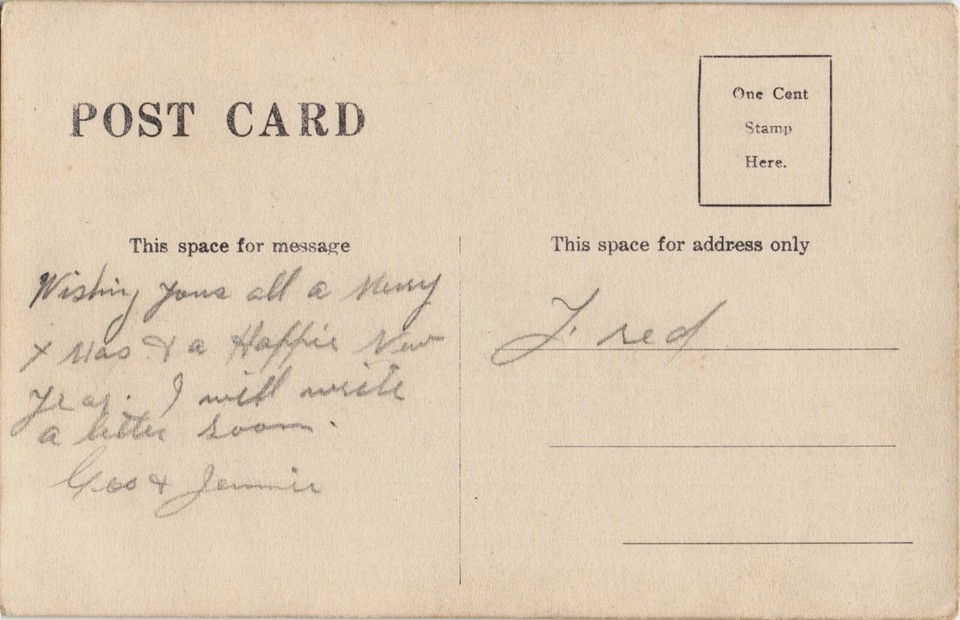 POST CARD
One Cent
Stamp
Here.
This space for message
Wishing yous all a Merry
x mas & a Happie New
Year. I will write
a letter soon.
Geo & Jennie
This space for address only
Fred